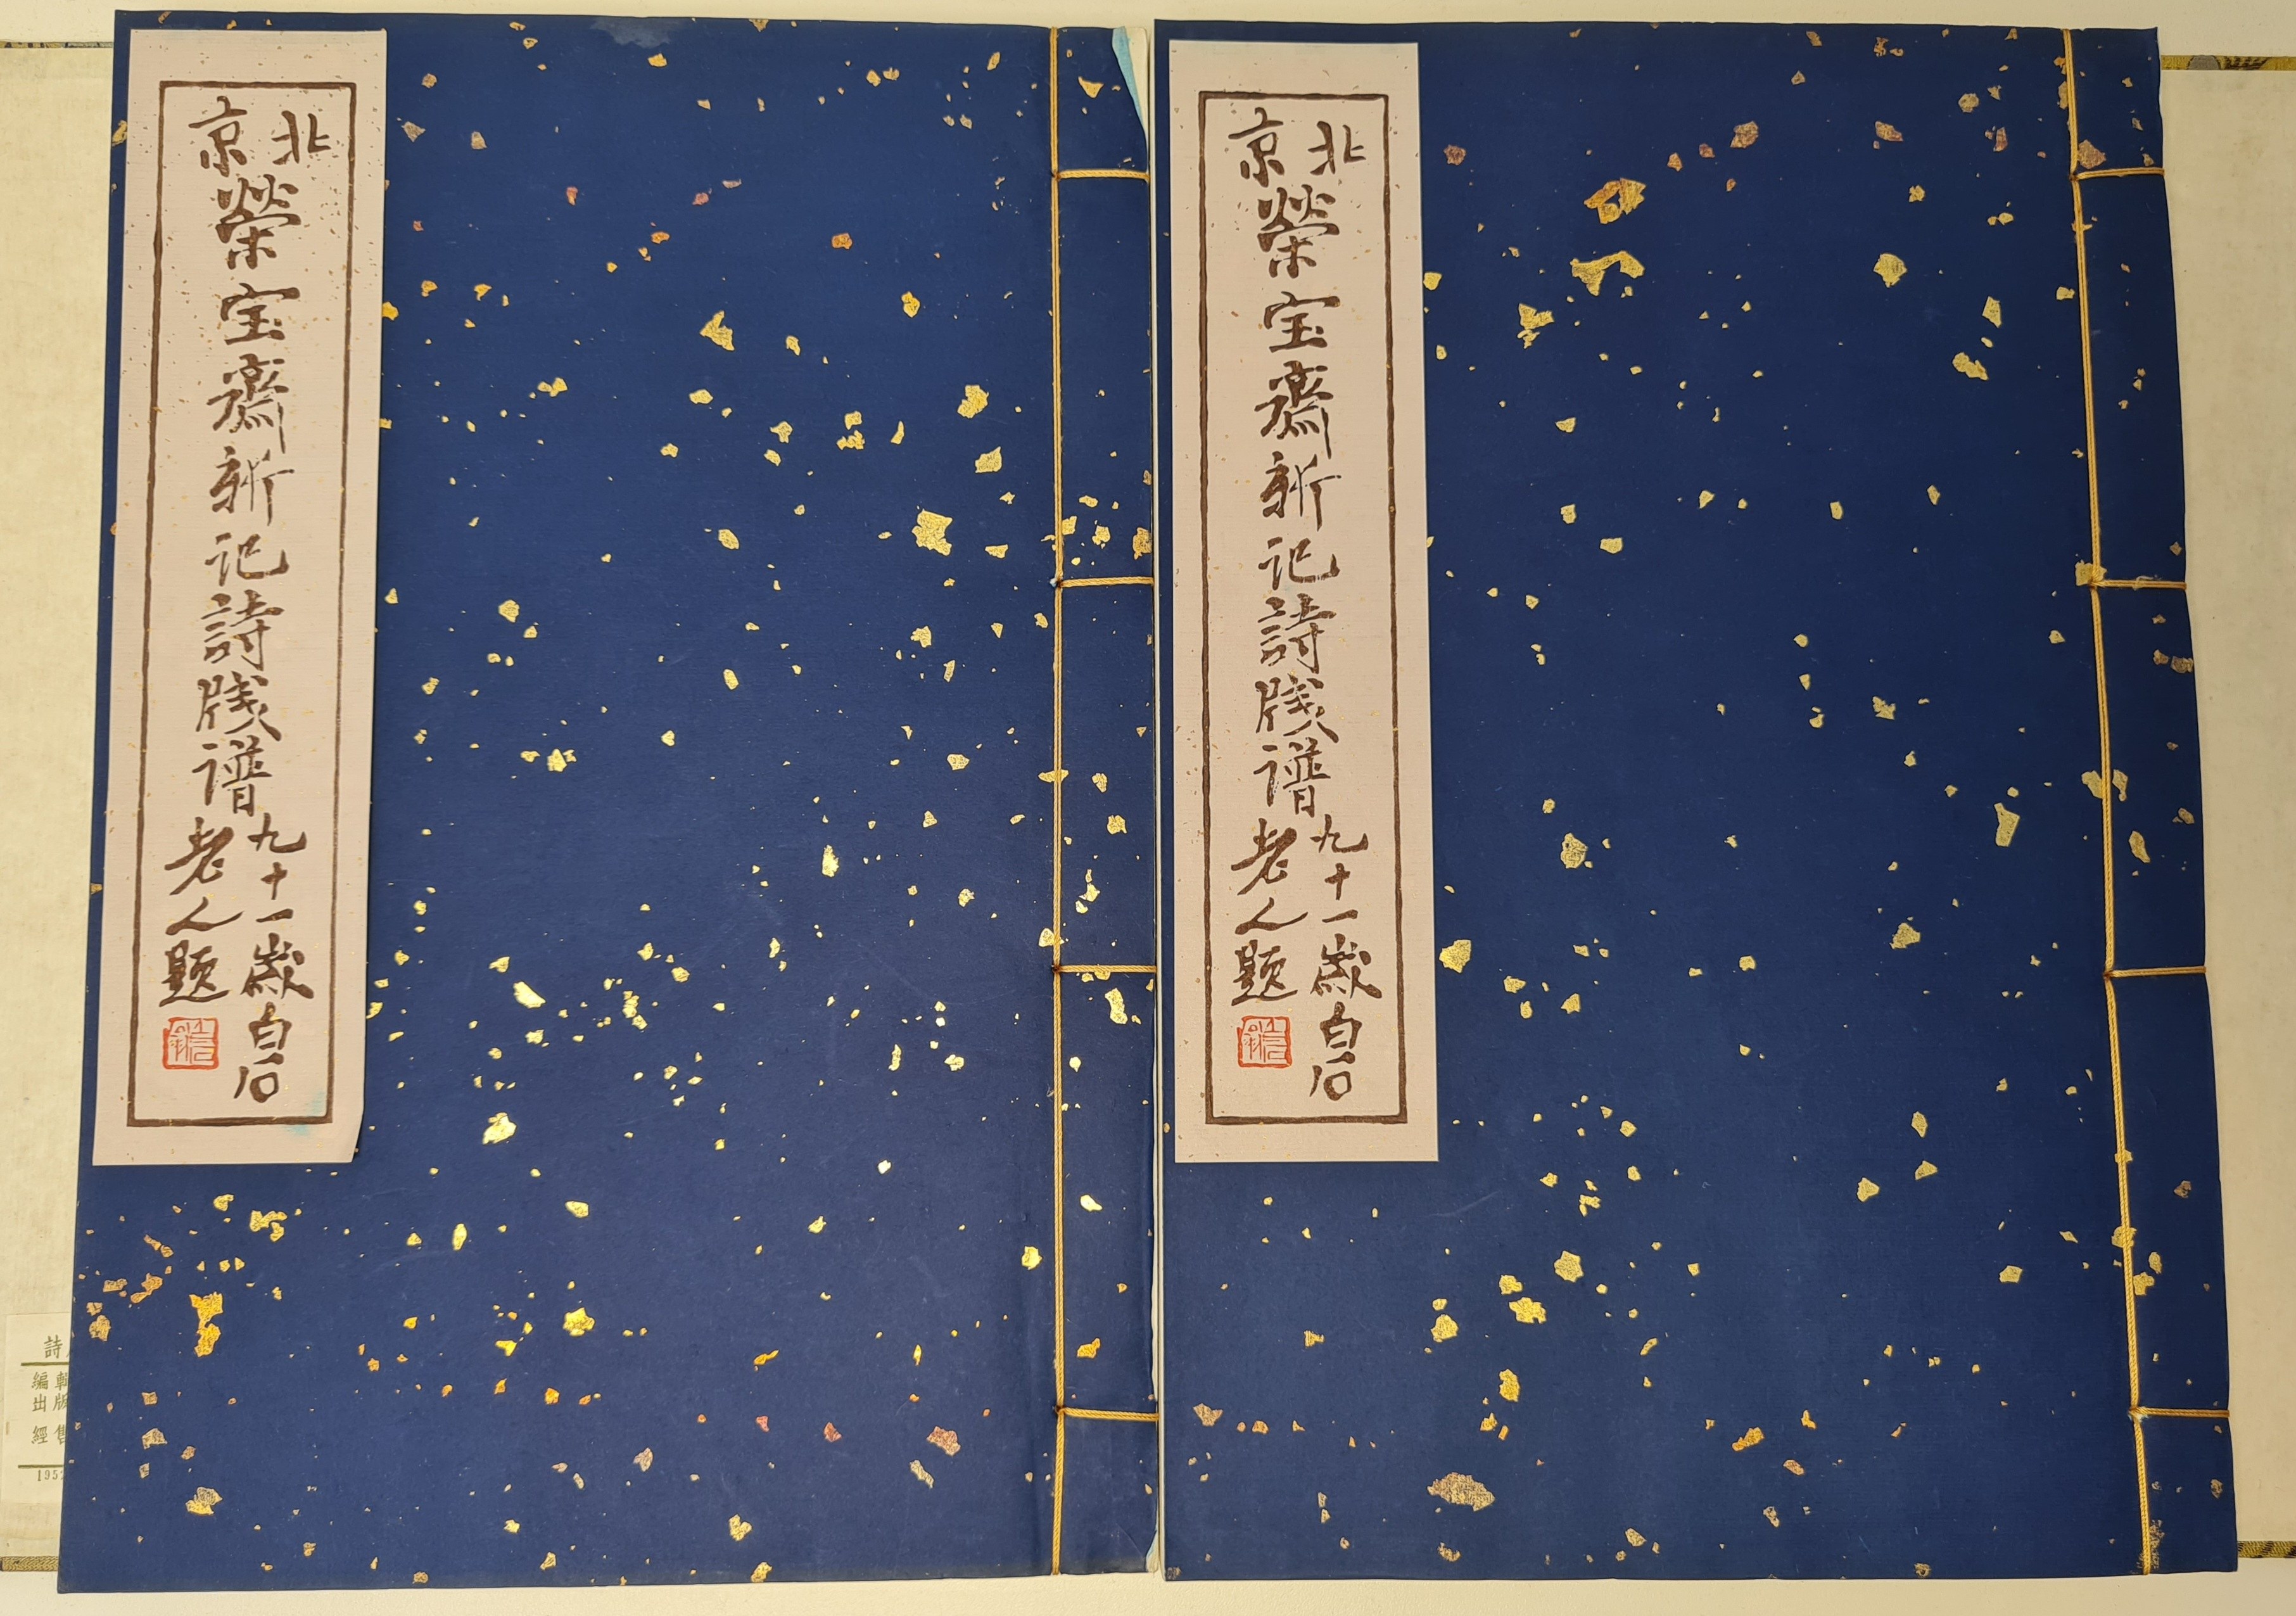 北京
榮宝齋新记詩牋谱
九十一歲白石
老人題
借山翁
北京
榮宝齋新记詩牋谱
九十一歲白石
老人題
借山翁
詩
編
出版
經
195